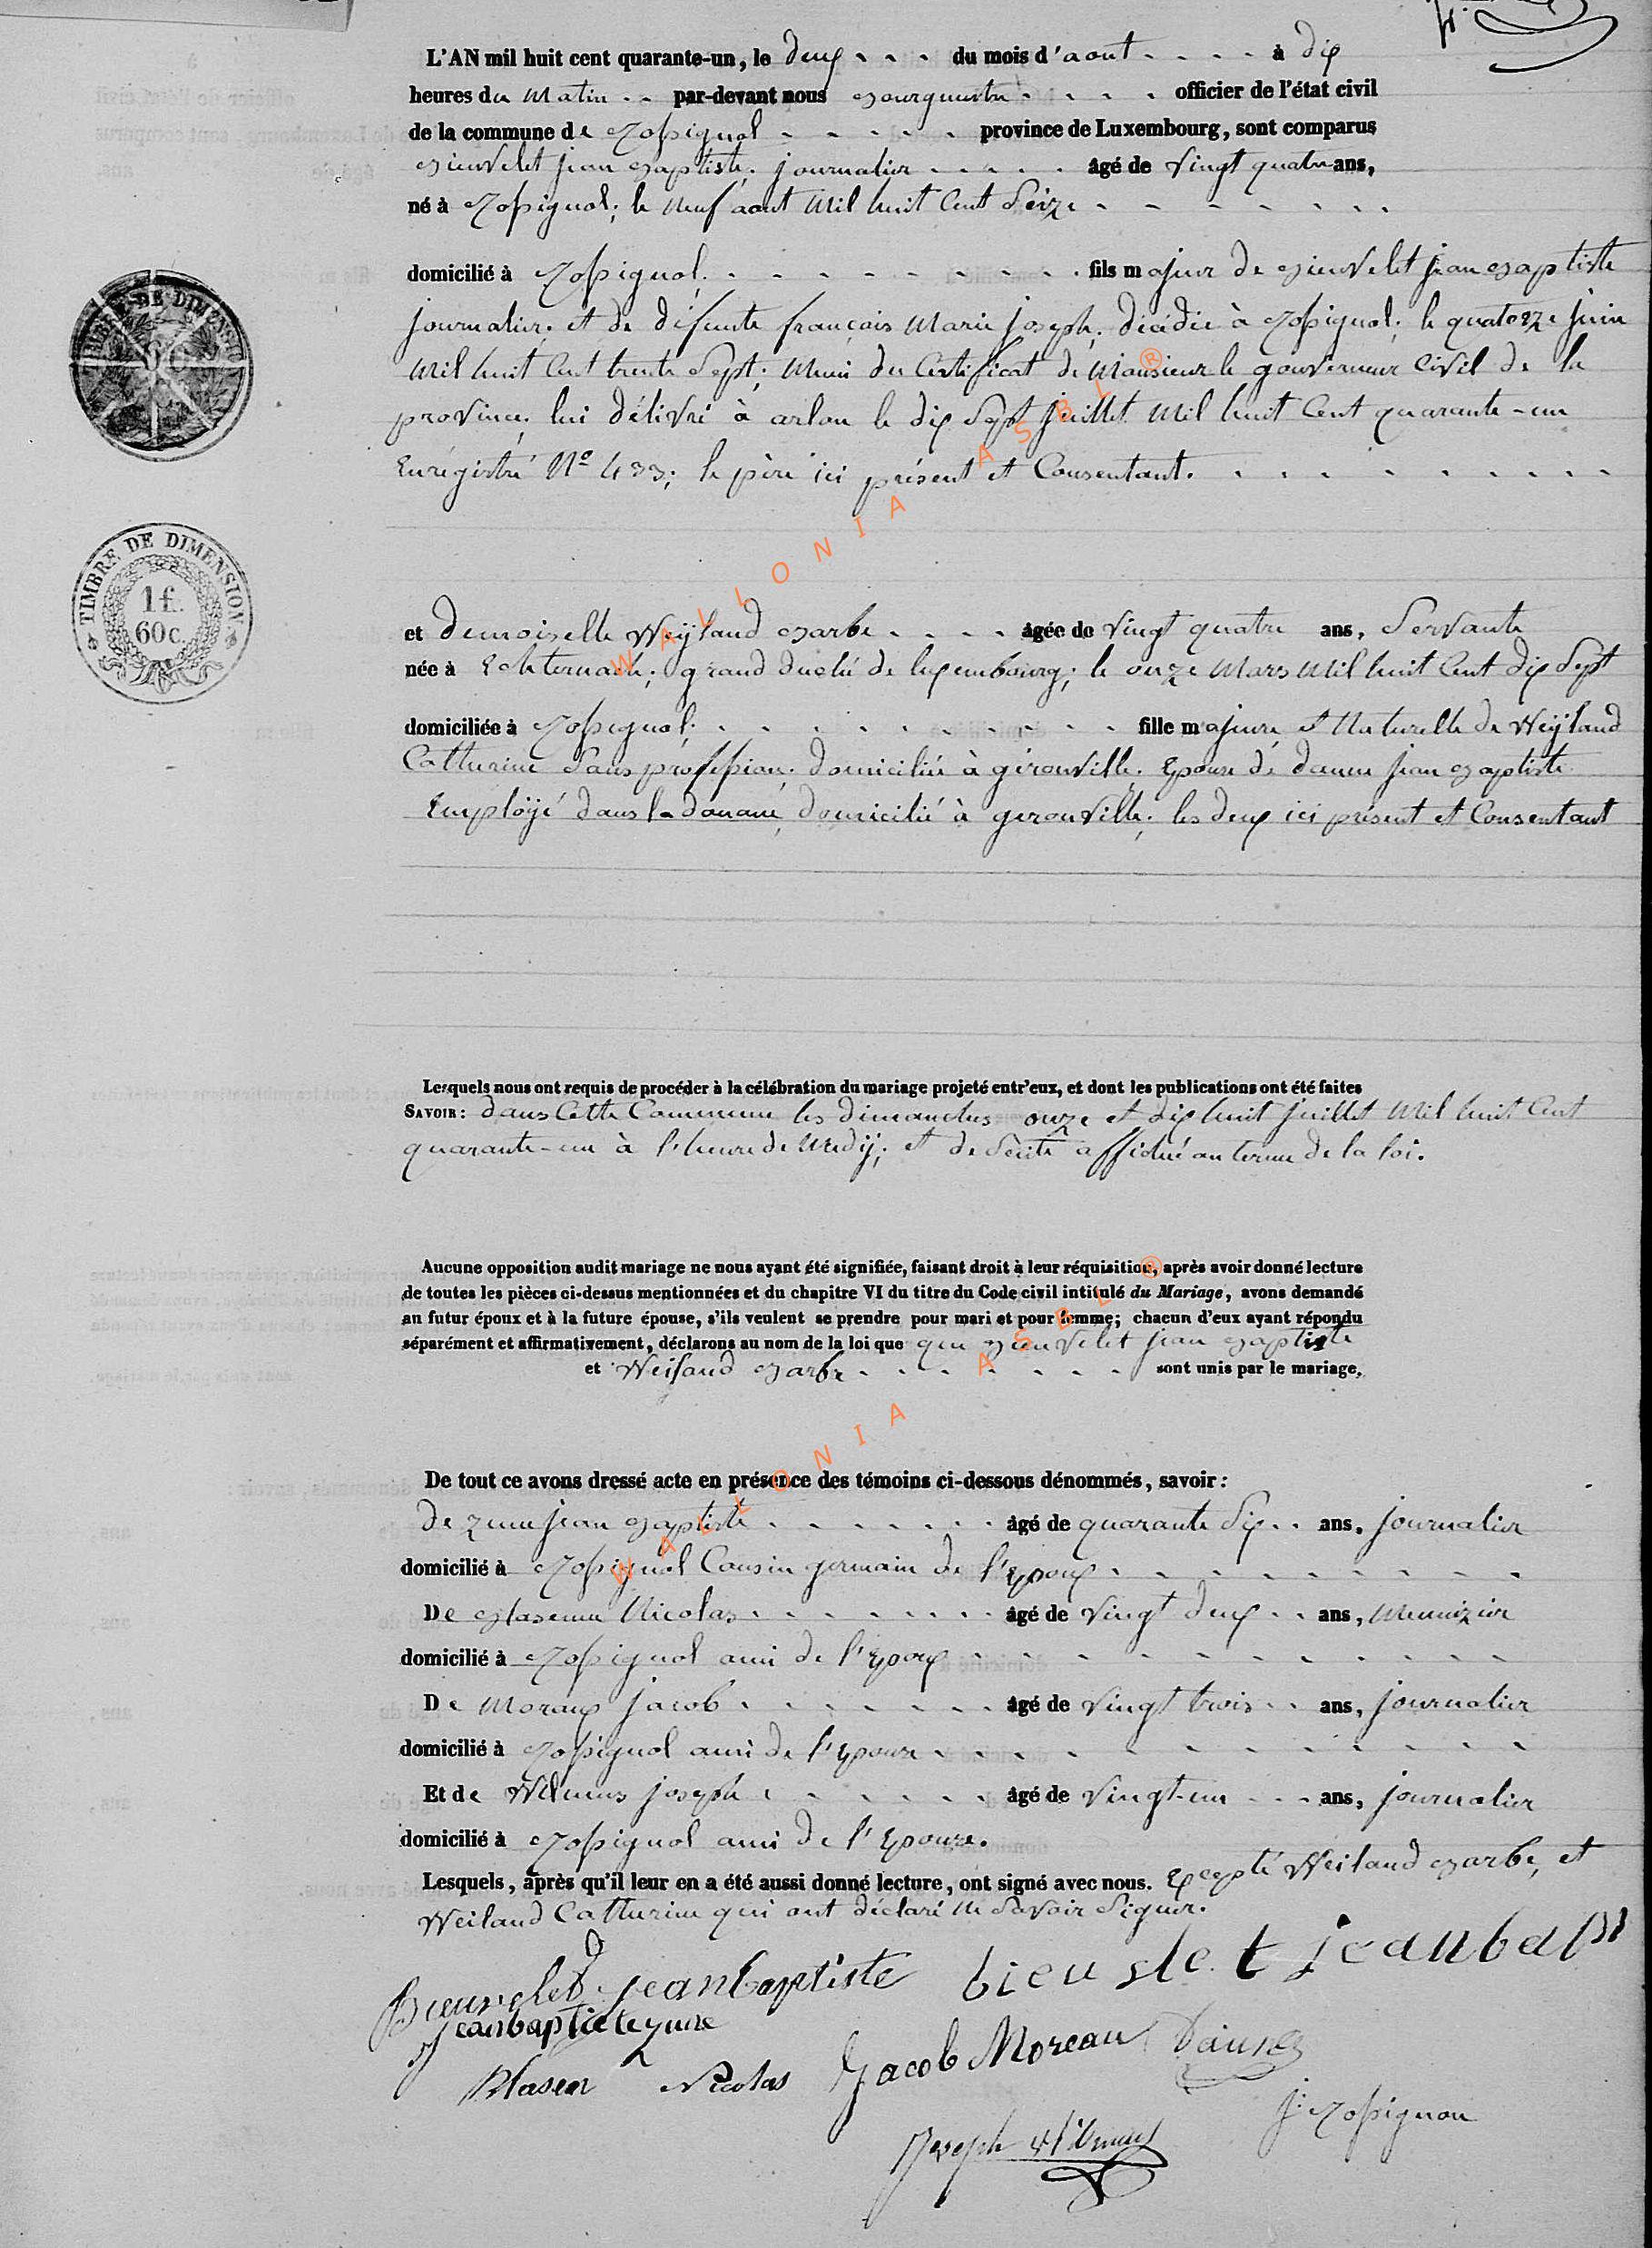 L'AN mil huit cent quarante-un, le deux du mois d'aout à dix
heures du matin par-devant nous bourgmestre officier de l'état civil
de la commune de Rossignol province de Luxembourg, sont comparus
bieuvelet jean baptiste, journalier âgé de vingt quatre ans,
né à Rossignol; le neuf aout mil huit cent seize
domicilié à Rossignol; fils majeur de bieuvelet jean baptiste
journalier, et de défunte françois marie joseph, décédée à Rossignol, le quatorze juin
mil huit cent trente sept; muni du certificat de monsieur le gouverneur civil de la
province, lui délivré à arlon le dix sept juillet mil huit cent quarante-un
enrégistré N° 433; le père ici présent et consentant.
TIMBRE DE DIMENSION
TIMBRE DE DIMENSION
1 f.
60 c.
et demoiselle Weÿland barbe âgée de vingt quatre ans, servante
née à Echternach; grand duché de luxembourg; le onze mars mil huit cent dix sept
domiciliée à Rossignol; fille majeure, et naturelle de Weÿland
Catherine sans profession, domiciliée à gérouville, épouse de dause jean baptiste
employé dans la douane, domicilié à gerouville, les deux ici présent et consentant
Lesquels nous ont requis de procéder à la célébration du mariage projeté entr'eux, et dont les publications ont été faites
SAVOIR: dans cette commune les dimanches onze et dix huit juillet mil huit cent
quarante-un à l'heure de midÿ; et de suite affiché au terme de la loi.
Aucune opposition audit mariage ne nous ayant été signifiée, faisant droit à leur réquisition, après avoir donné lecture
de toutes les pièces ci-dessus mentionnées et du chapitre VI du titre du Code civil intitulé du Mariage, avons demandé
au futur époux et à la future épouse, s'ils veulent se prendre pour mari et pour femme; chacun d'eux ayant répondu
séparément et affirmativement, déclarons au nom de la loi que que bieuvelet jean baptiste
et Weiland barbe sont unis par le mariage,
De tout ce avons dressé acte en présence des témoins ci-dessous dénommés, savoir:
de zune jean baptiste âgé de quarante six ans, journalier
domicilié à Rossignol cousin germain de l'époux
De blasen Nicolas âgé de vingt deux ans, menuizier
domicilié à Rossignol ami de l'époux
De Moraux jacob âgé de vingt trois ans, journalier
domicilié à Rossignol ami de l'épouse
Et de Wilmus joseph âgé de vingt-un ans, journalier
domicilié à Rossignol ami de l'épouze.
Lesquels, après qu'il leur en a été aussi donné lecture, ont signé avec nous. excepté Weiland barbe, et
Weiland Catherine qui ont déclaré ne savoir signer.
Bieuvelet jean baptiste bieuvlet jeanbapt
jeanbaptiste zune
Blasen Nicolas Jacob Moreau Dause
J. Rossignon
Joseph Wilmus
WALLONIA ASBL ®
WALLONIA ASBL ®